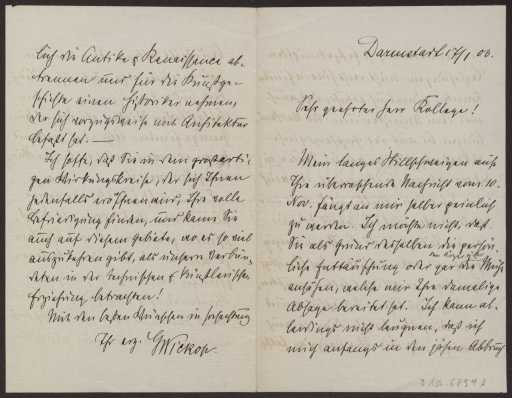 Darmstadt 17/1 00.
Sehr geehrter Herr Kollege!
Mein langes Stillschweigen auf
Ihre überraschende Nachricht vom 10.
Nov. fängt an mir selber peinlich
zu werden. Ich möchte nicht, daß
Sie als Grund desselben die persön-
liche Enttäuschung oder gar die Mühe
ansehen, welche mir Ihre damalige
Absage bereitet hat. Ich kann al-
lerdings nicht leugnen, daß ich
mich anfangs in den jähen Abbruch
lich die Antike & Renaissance ab-
trennen und für die Kunstge-
schichte einen Historiker nehmen,
der sich vorzugsweise mit Architektur
befaßt hat. —
Ich hoffe, daß Sie in dem großarti-
gen Wirkungskreise, der sich Ihnen
jedenfalls eröffnen wird, Ihre volle
Befriedigung finden, und kann Sie
auch auf diesem Gebiete, wo es so viel
aufzuführen gibt, als unseren Verbün-
deten in der technischen & künstlerischen
Erziehung betrachten!
Mit den besten Wünschen in Hochachtung
Ihr erg. GWickop.